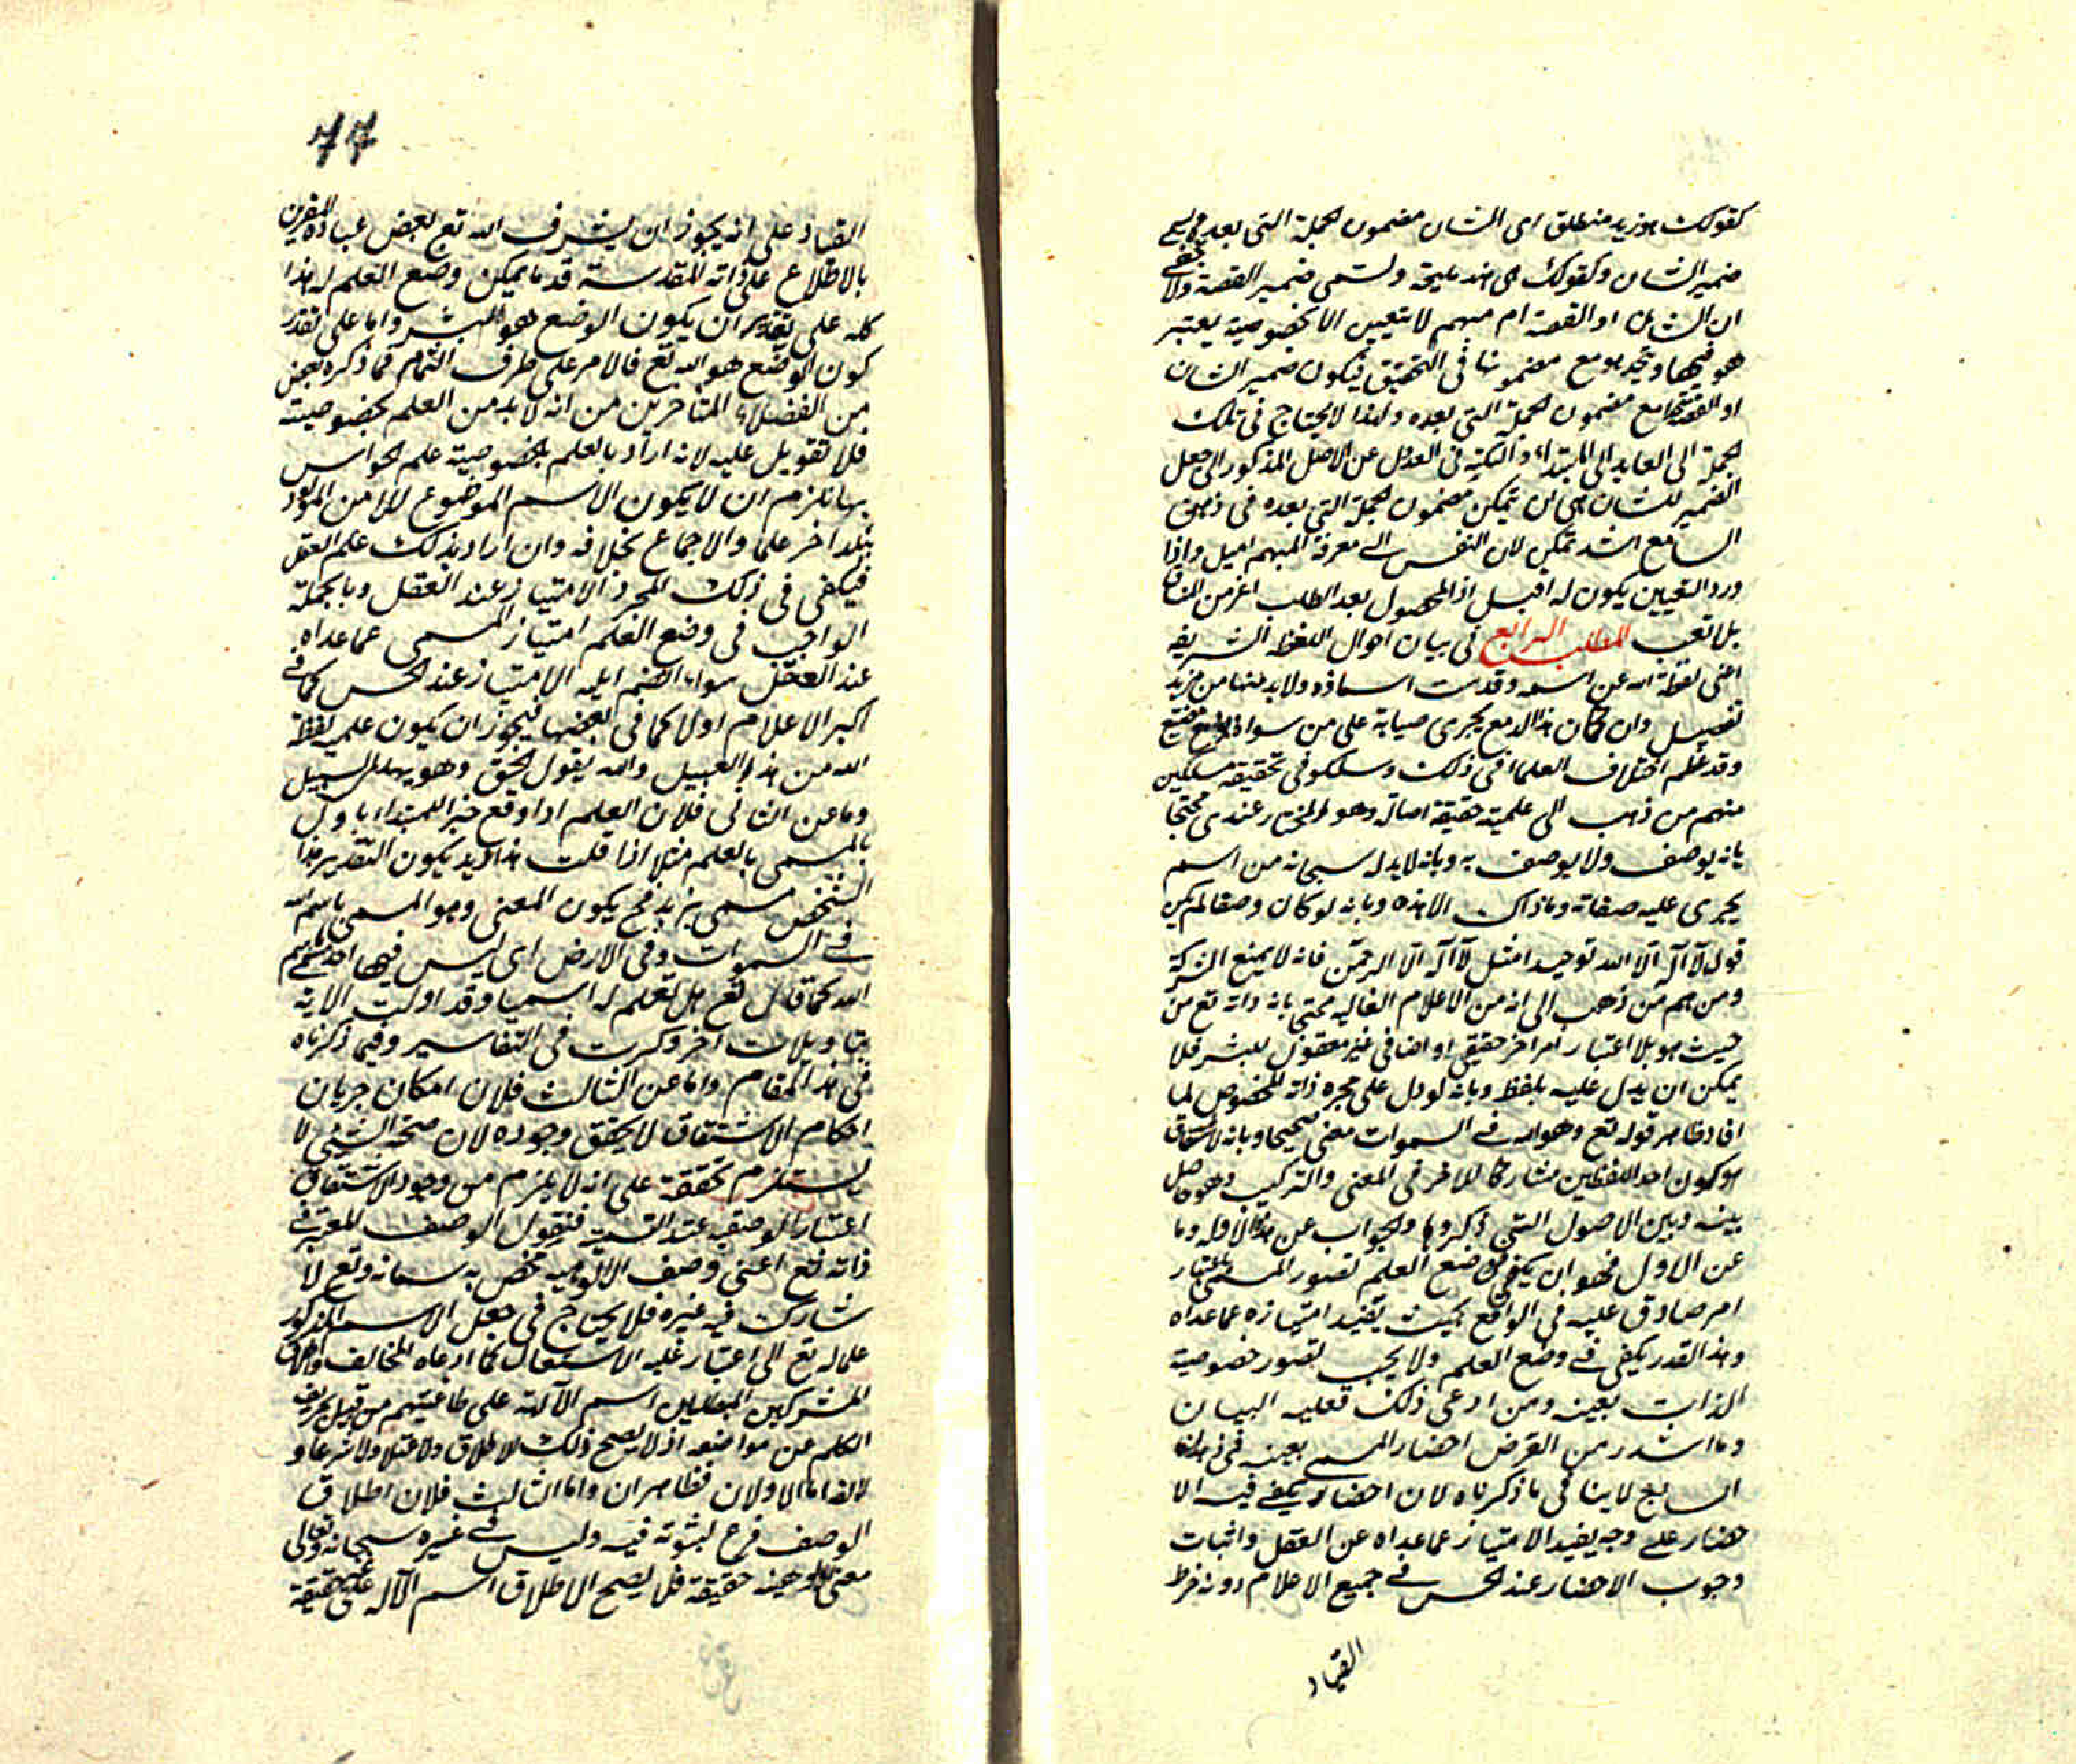 كقولك هو زيد منطلق اى الشان مضمون الجملة التى بعده ويسمى
ضمير الشان وكقولك هى هند مليحة وتسمى ضمير القصة ولا يخفى
ان الشان او القصة ام مبهم لا يتعين الا بخصوصية يعتبر
هو فيها ويتحد هو مع مضمونها فى التحقيق فيكون ضمير الشان
او القصة مع مضمون الجملة التى بعده ولهذا لا يحتاج فى تلك
الجملة الى العايد الى المبتداء والنكتة فى العدول عن الاصل المذكور الى جعل
الضمير للشان هى ان يتمكن مضمون الجملة التى بعده فى ذهن
السامع اشد تمكن لان النفس الى معرفة المبهم اميل واذا
ورد التعيين يكون له اقبل اذ المحصول بعد الطلب اعز من المنساق
بلا تعب المطلب الرابع فى بيان احوال اللفظة الشريفه
اعنى لفظة الله عن اسمه وقد مت ولا بد منها من مزيد
تفصيل وان كان هذا مع يجرى على من سواه
وقد عظم اختلاف العلما فى ذلك وسلكو فى تحقيقه مسلكين
منهم من ذهب الى علميته حقيقة اصالة وهو المختار عندى محتجا
بانه يوصف ولا يوصف به وبانه لا بد له سبحانه من اسم
يجرى عليه صفاته وما ذاك الا هذه وبانه لو كان وصفا لم يكن
قول لا اله الا الله توحيدا مثل لا اله الا الرحمن فانه لا يمنع الشركة
ومن هم من ذهب الى انه من الاعلام الغالبه محتج بانه ذاته تع من
حيث هو بلا اعتبار امر اخر حقيقى او اضافى غير معقول للبشر فلا
يمكن ان يدل عليه بلفظ وبانه لو دل على مجرد ذاته المخصوص لما
افاد ظاهر قوله تع وهو الله فى السموات معنى صحيحا وبانه الاشتقاق
هو كون احد اللفظين مشاركا للاخر فى المعنى والتركيب وهو حاصل
بينه وبين الاصول التى ذكروها والجواب عن هذه الادله وما
عن الاول فهو ان يكفى فى وضع العلم تصور المسمى باعتبار
امر صادق عليه فى الواقع بحيث يفيد امتيازه عما عداه
وهذا القدر يكفى فى وضع العلم ولا يجب تصور خصوصية
الذات بعينه ومن ادعى ذلك فعليه البيان
وما اشتهر من الغرض احضار المسمى بعينه فى ذهن
السامع لا ينافى ما ذكرناه لان احضار يكفى فيه الا
حضار على وجه يفيد الامتياز عما عداه عن العقل واثبات
وجوب الاحضار عند الحس فى جميع الاعلام دونه خرط
القتاد
٦٧
القتاد على انه يجوز ان يشرف الله تع لبعض عباده المقربين
بالاطلاع على ذاته المقدسة قد ما يمكن وضع العلم له هذا
كله على تقدير ان يكون الوضع هو البشر واما على تقدير
كون الوضع هو الله تع فالامر على طرف التمام فما ذكره بعض
من الفضلاء المتاخرين من انه لا بد من العلم بخصوصيته
فلا تعويل عليه لانه اراد بالعلم بخصوصية علم الحواس
بها نلزم ان لا يكون الاسم الموضوع للامن المولود
ببلد اخر علما والاجماع بخلافه وان اراد بذلك علم العقل
فيكفى فى ذلك المجرد الامتياز عند العقل وبالجملة
الواجب فى وضع العلم امتياز المسمى عما عداه
عند العقل سواء انضم اليه الامتياز عند الحس كما فى
اكبر الاعلام اولا كما فى بعضها فيجوز ان يكون علمية لفظة
الله من هذا القبيل والله يقول الحق وهو يهدى السبيل
وما عن الثانى فلان العلم اذا وقع خبرا للمبتداء ياول
بالمسمى بالعلم مثلا اذا قلت هذا زيد يكون التقدير هذا
الشخص مسمى بزيد فح يكون المعنى وهو المسمى باسم الله
فى السموات وفى الارض اى ليس فيها احد مسمى باسم
الله كما قال تع هل تعلم له سميا وقد اولت الاية
بتاويلات اخر ذكرت فى التفاسير وفيما ذكرناه
فى هذا المقام واما عن الثالث فلان امكان جريان
احكام الاشتقاق لا يحقق وجوده لان صحة الشئ لا
يستلزم تحققه على انه لا يلزم من وجود الاشتقاق
اعتبار الوصفيه عند التسمية فنقول الوصف المعتبر فى
ذاته تع اعنى وصف الالوهيه مختص به سبحانه وتع لا
يشارك فيه غيره فلا يحتاج فى جعل الاسم المذكور
علما له تع الى اعتبار غلبه الاستعمال كما ادعاه المخالف واطلاق
المشركين المبطلين اسم الآلهة على طاغيتهم من قبيل تحريف
الكلم عن مواضعه اذ لا يصح ذلك الاطلاق ولا عقلا ولا شرعا و
لا لغة اما الاولان فظاهران واما الثالث فلان اطلاق
الوصف فرع لثبوته فيه وليس فى غيره سبحانه وتعالى
معنى الوهيته حقيقة فلا يصح الاطلاق اسم الآله على غيره حقيقة